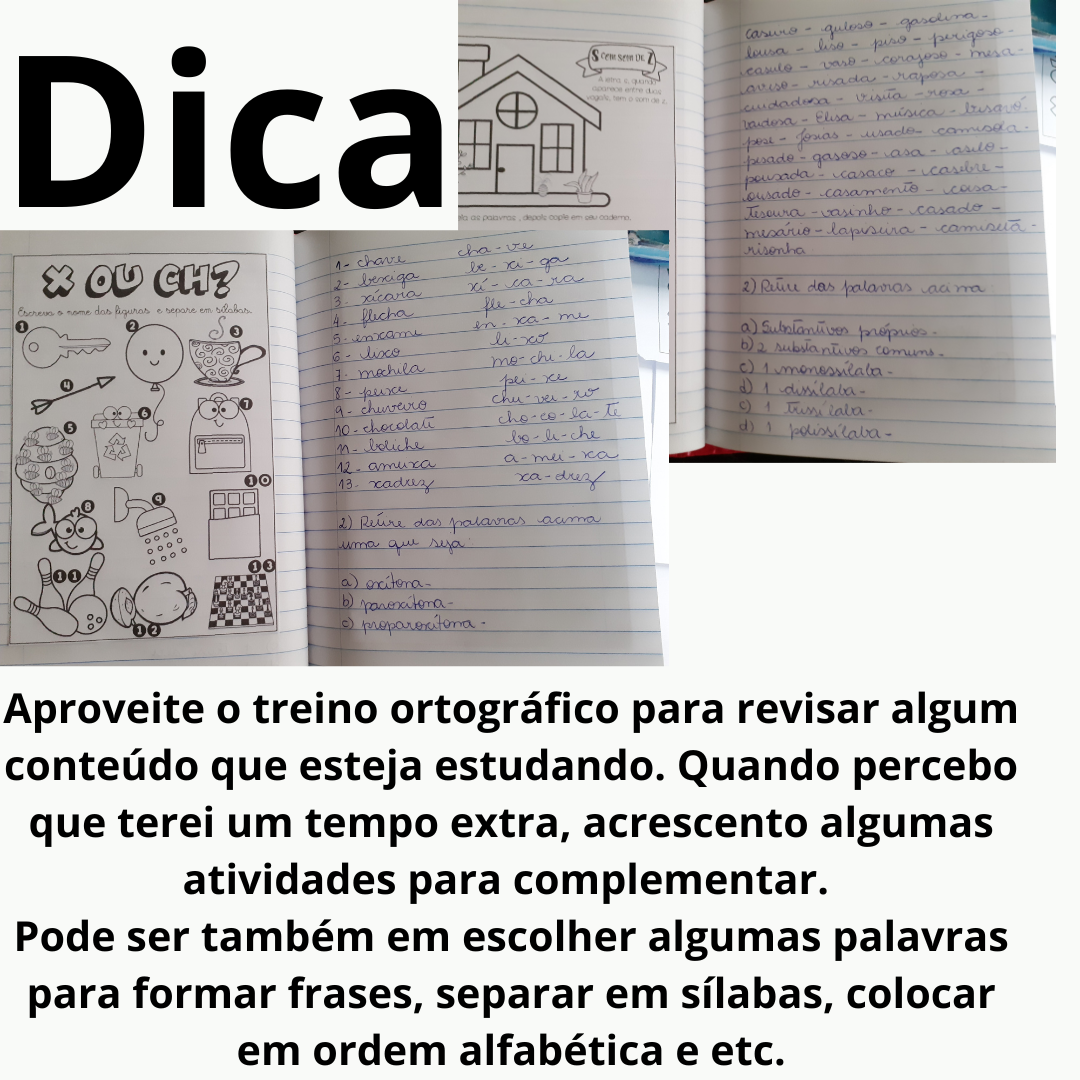 Dica
S com som de Z
A letra s, quando
aparece entre duas
vogais, tem o som de z.
as palavras, depois copie em seu caderno.
caseiro - guloso - gasolina -
lousa - liso - piso - perigoso -
casulo - vaso - corajoso - mesa -
aviso - risada - raposa -
cuidadosa - visita - rosa -
vaidosa - Elisa - música - bisavó.
pose - Josias - usado - camisola -
pesado - gasoso - asa - asilo -
pousada - casaco - casebre -
ousado - casamento - coisa -
tesoura - vasinho - casado -
mesário - lapiseira - camiseta -
risonha
2) Retire das palavras acima:
a) Substantivos próprios -
b) 2 substantivos comuns -
c) 1 monossílaba -
d) 1 dissílaba -
c) 1 trissílaba -
d) 1 polissílaba -
X OU CH?
Escreva o nome das figuras e separe em sílabas.
1
2
3
4
5
6
7
8
9
10
11
12
13
1- chave cha-ve
2- bexiga be-xi-ga
3- xícara xí-ca-ra
4- flecha fle-cha
5- enxame en-xa-me
6- lixo li-xo
7- mochila mo-chi-la
8- peixe pei-xe
9- chuveiro chu-vei-ro
10- chocolate cho-co-la-te
11- boliche bo-li-che
12- ameixa a-mei-xa
13- xadrez xa-drez
2) Retire das palavras acima
uma que seja:
a) oxítona -
b) paroxítona -
c) proparoxítona -
Aproveite o treino ortográfico para revisar algum
conteúdo que esteja estudando. Quando percebo
que terei um tempo extra, acrescento algumas
atividades para complementar.
Pode ser também em escolher algumas palavras
para formar frases, separar em sílabas, colocar
em ordem alfabética e etc.